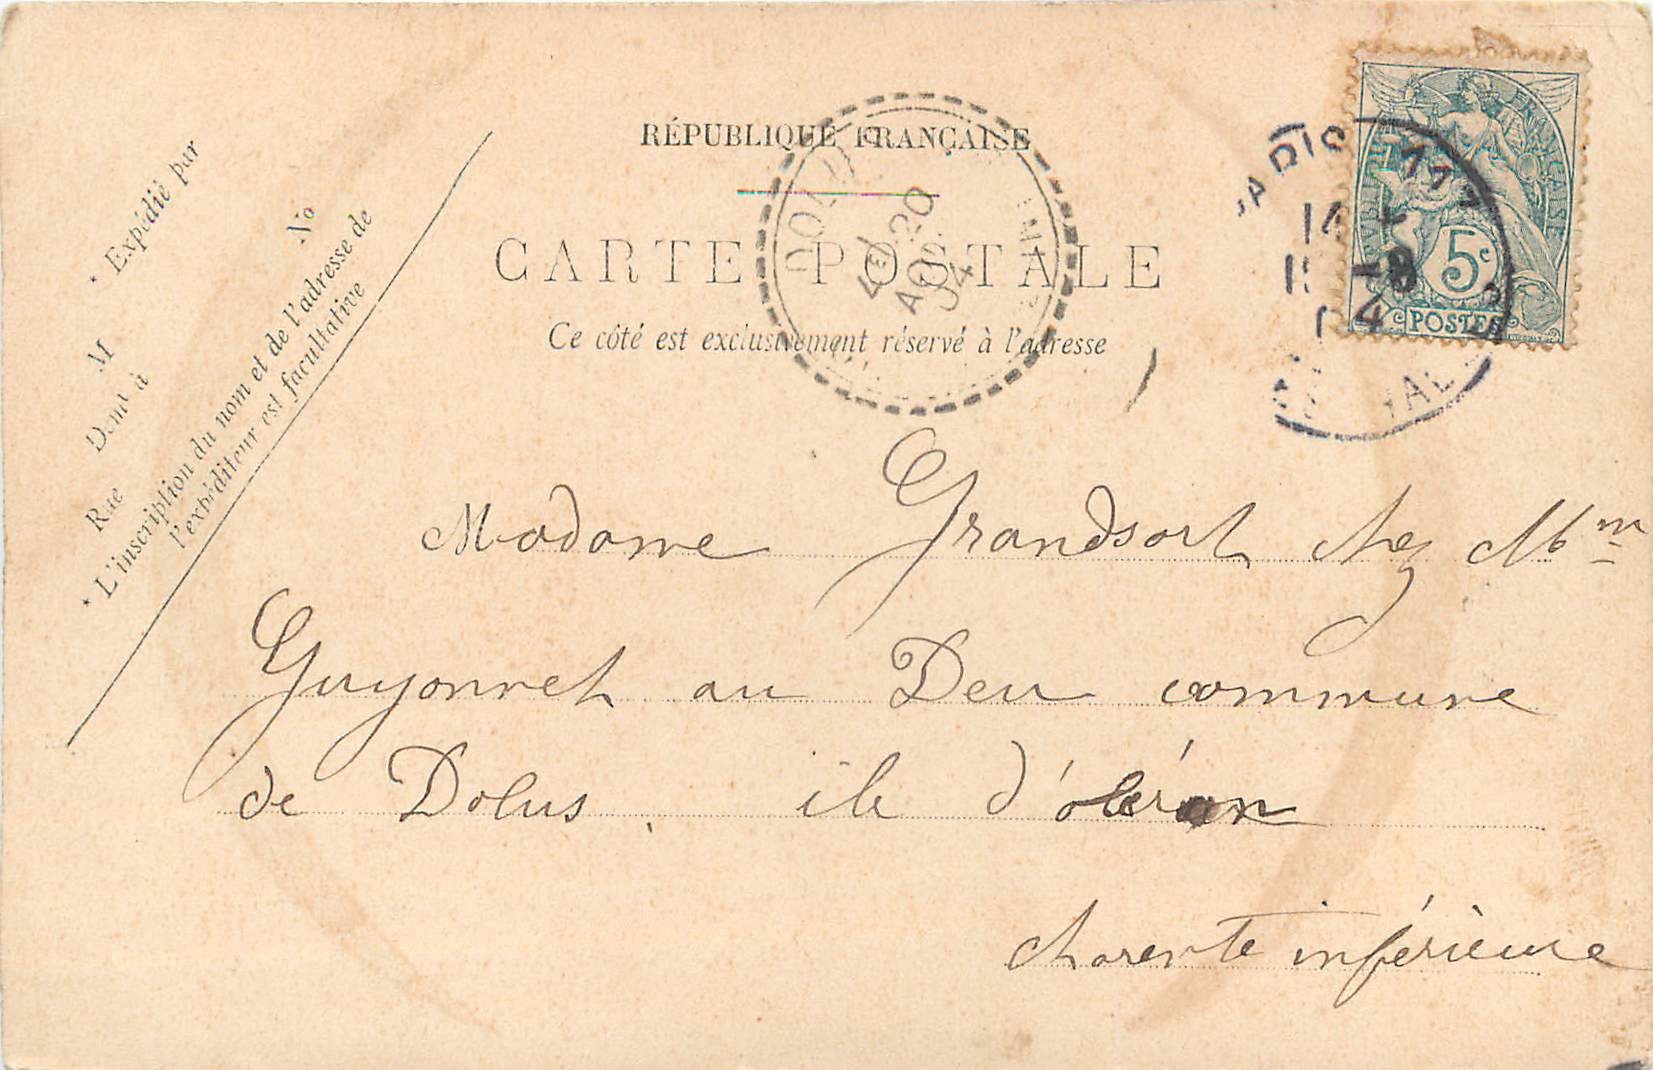 RÉPUBLIQUE FRANÇAISE
CARTE POSTALE
Ce côté est exclusivement réservé à l'adresse
* Expédié par
M
Dem^t à
Rue
N^o
* L'inscription du nom et de l'adresse de
l'expéditeur est facultative
RÉPUBLIQUE FRANÇAISE
5c
POSTES
PARIS
DOLUS
1E/20
AOUT
04
Madame Grandsort chez Mm
Guyonnet au Deu commune
de Dolus. ile d'oléron
charente inférieure